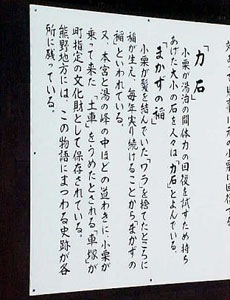 「力石」
小栗が湯治の間体力の回復を試すため持ち
あげた大小の石を人々は「力石」とよんでいる。
「まかずの稲」
小栗が髪を結んでいた「ワラ」を捨てたところに
稲が生え、毎年実り続けることから「まかずの
稲」といわれている。
又、本宮と湯の峰の中ほどの道わきに、小栗が
乗って来た「土車」をうめたとされる「車塚」が
町指定の文化財として保存されている。
熊野地方には、この物語にまつわる史跡が各
所に残っている。